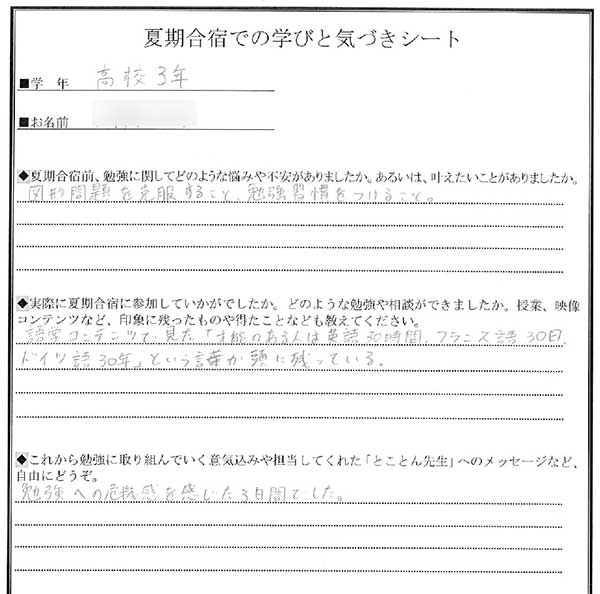 夏期合宿での学びと気づきシート
■学 年 高校3年
■お名前
◆夏期合宿前、勉強に関してどのような悩みや不安がありましたか。あるいは、叶えたいことがありましたか。
図形問題を克服すること、勉強習慣をつけること。
◆実際に夏期合宿に参加していかがでしたか。どのような勉強や相談ができましたか。授業、映像
コンテンツなど、印象に残ったものや得たことなども教えてください。
語学コンテンツで見た「才能のある人は英語30時間、フランス語30日、
ドイツ語30年」という言葉が頭に残っている。
◆これから勉強に取り組んでいく意気込みや担当してくれた「とことん先生」へのメッセージなど、
自由にどうぞ。
勉強への危機感を感じた3日間でした。